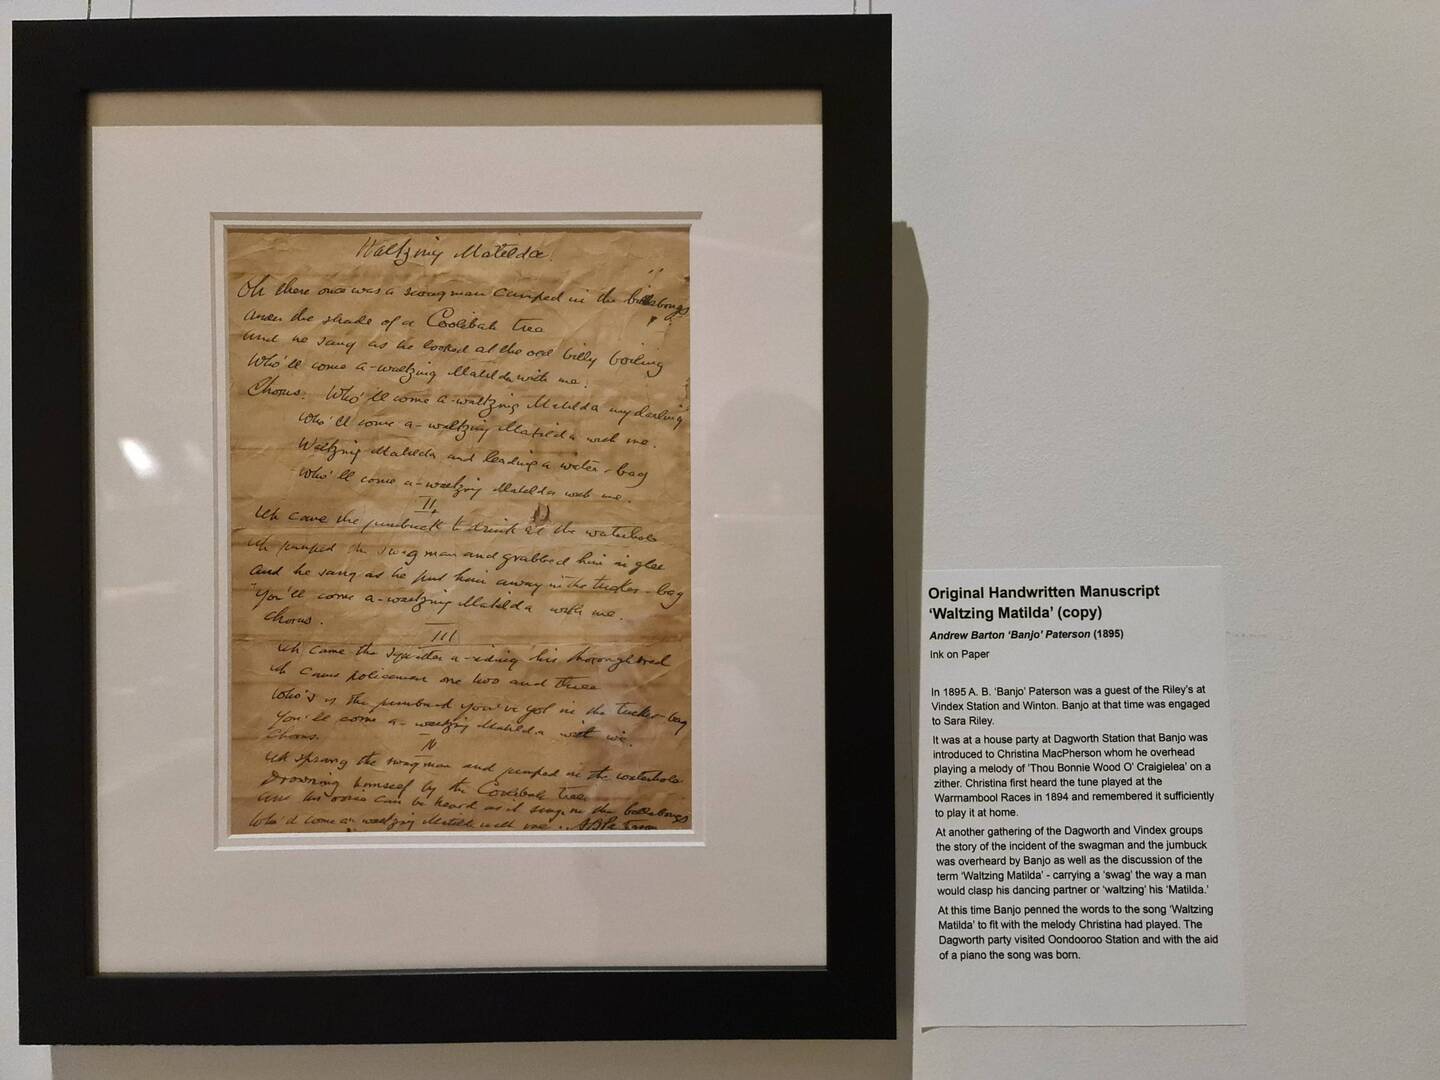 Waltzing Matilda.
Oh there once was a swagman camped in the billabongs
under the shade of a Coolibah tree
and he sang as he looked at the old billy boiling
Who'll come a-waltzing Matilda with me.
Chorus. Who'll come a-waltzing Matilda my darling
Who'll come a-waltzing Matilda with me.
Waltzing Matilda and leading a water-bag
Who'll come a-waltzing Matilda with me.
II
Up came the jumbuck to drink at the waterhole
Up jumped the swagman and grabbed him in glee
and he sang as he put him away in the tucker-bag
You'll come a-waltzing Matilda with me.
Chorus.
III
Up came the squatter a-riding his thoroughbred
Up came policemen one two and three
Who's is the jumbuck you've got in the tucker-bag
You'll come a-waltzing Matilda with we.
Chorus.
IV
Up sprang the swagman and jumped in the waterhole
Drowning himself by the Coolibah tree
and his voice can be heard as it sings in the billabongs
Who'll come a-waltzing Matilda with me.
Original Handwritten Manuscript
'Waltzing Matilda' (copy)
Andrew Barton 'Banjo' Paterson (1895)
Ink on Paper
In 1895 A. B. 'Banjo' Paterson was a guest of the Riley's at
Vindex Station and Winton. Banjo at that time was engaged
to Sara Riley.
It was at a house party at Dagworth Station that Banjo was
introduced to Christina MacPherson whom he overhead
playing a melody of 'Thou Bonnie Wood O' Craigielea' on a
zither. Christina first heard the tune played at the
Warrnambool Races in 1894 and remembered it sufficiently
to play it at home.
At another gathering of the Dagworth and Vindex groups
the story of the incident of the swagman and the jumbuck
was overheard by Banjo as well as the discussion of the
term 'Waltzing Matilda' - carrying a 'swag' the way a man
would clasp his dancing partner or 'waltzing' his 'Matilda.'
At this time Banjo penned the words to the song 'Waltzing
Matilda' to fit with the melody Christina had played. The
Dagworth party visited Oondooroo Station and with the aid
of a piano the song was born.